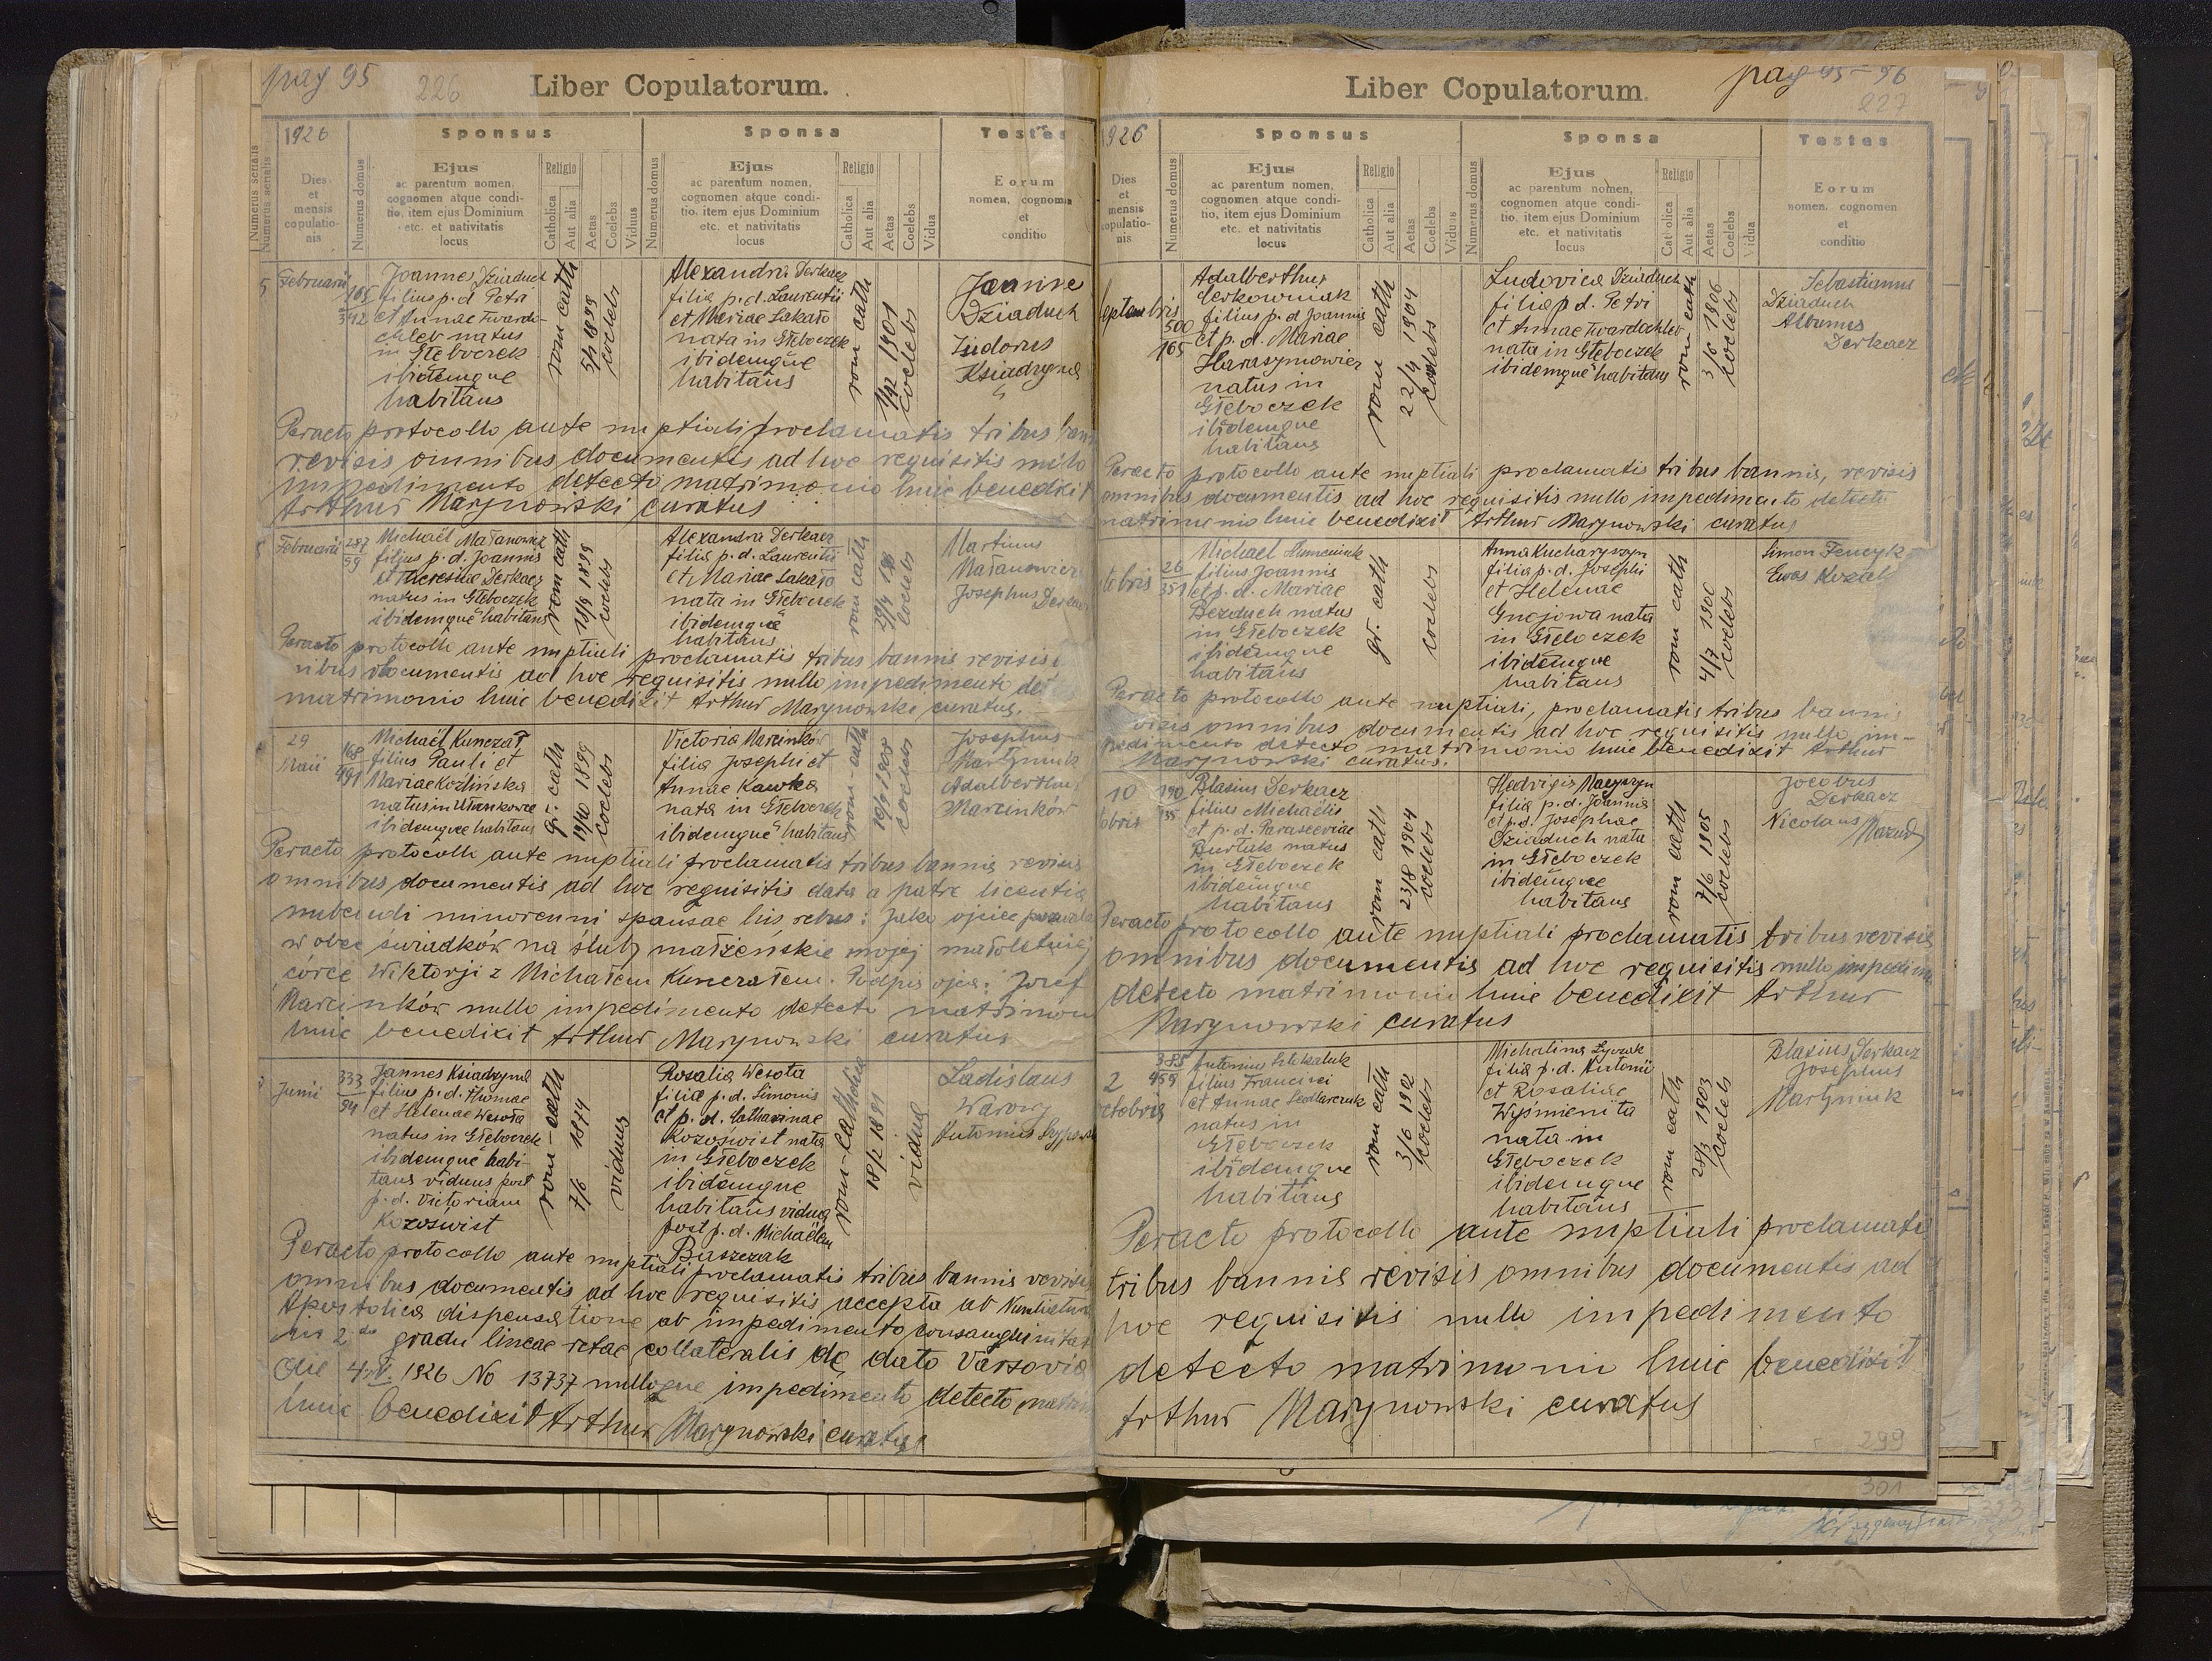 pag 95
226
Liber Copulatorum.
1926
Sponsus
Sponsa
Testes
Numerus serialis
Numerus serialis
Dies
et
mensis
copulatio-
nis
Numerus domus
Ejus
ac parentum nomen,
cognomen atque condi-
tio, item ejus Dominium
etc. et nativitatis
locus
Religio
Catholica
Aut alia
Aetas
Coelebs
Viduus
Numerus domus
Ejus
ac parentum nomen,
cognomen atque condi-
tio, item ejus Dominium
etc. et nativitatis
locus
Religio
Catholica
Aut alia
Aetas
Coelebs
Vidua
Eorum
nomen, cognomen
et
conditio
5 Februarii
105
342
Joannes Dziaduch
filius p. d. Petri
et Annae Twardo-
chleb natus
in Głęboczek
ibidemque
habitans
rom cath
5/7 1899
coelebs
Alexandra Derkacz
filia p. d. Laurentii
et Mariae Sakało
nata in Głęboczek
ibidemque
habitans
rom cath
1/12 1901
coelebs
Joannes
Dziaduch
Isidorus
Ksiadzyna
Peracto protocollo ante nuptiali proclamatis tribus bann
revisis omnibus documentis ad hoc requisitis nullo
impedimento detecto matrimonio huic benedixit
Arthur Marynowski curatus
Februarii
287
59
Michaël Małanowicz
filius p. d. Joannis
et Theresiae Derkacz
natus in Głęboczek
ibidemque habitans
rom cath
1899
coelebs
Alexandra Derkacz
filia p. d. Laurentii
et Mariae Sakało
nata in Głęboczek
ibidemque
habitans
rom cath
coelebs
Martinus
Małanowicz
Josephus Derkacz
Peracto protocollo ante nuptiali proclamatis tribus bannis revisis
nibus documentis ad hoc requisitis nullo impedimento det
matrimonio huic benedixit Arthur Marynowski curatus.
29
Maii
168
491
Michaël Kunczał
filius Pauli et
Mariae Kozlińska
natus in
ibidemque habitans
gr. cath
19/10 1899
coelebs
Victoria Marcinków
filia Josephi et
Annae Kawka
nata in Głęboczek
ibidemque habitans
rom-cath
coelebs
Josephus
Martyniuk
Adalberthus
Marcinków
Peracto protocollo ante nuptiali proclamatis tribus bannis revisis
omnibus documentis ad hoc requisitis data a patre licentia
nubendi minorenni sponsae his rebus: Jako ojciec pozwala
w obec świadków na śluby małżeńskie mojej małoletniej
córce Wiktorji z Michałem Kunczałem. Podpis ojca: Józef
Marcinków nullo impedimento detecto matrimon
huic benedixit Arthur Marynowski curatus
Junii
333
94
Joannes Ksiadzyna
filius p. d. Thomae
et Helenae Wesoła
natus in Głęboczek
ibidemque habi-
tans viduus post
p. d. Victoriam
Kozoświst
rom-cath
7/6 1874
viduus
Rosalia Wesoła
filia p. d. Simonis
et p. d. Catharinae
Kozoświst nata
in Głęboczek
ibidemque
habitans vidua
post p. d. Michaëlem
Błaszczak
rom-catholica
18/2 1891
vidua
Ladislaus
Warowy
Antonius
Peracto protocollo ante nuptiali proclamatis tribus bannis revisis
omnibus documentis ad hoc requisitis accepta ab Nuntiatura
Apostolica dispensatione ab impedimento consanguinitat
2do gradu lineae retae collateralis de dato Varsovia
die 4/V. 1926 No 13737 nulloque impedimento detecto matrim
huic benedixit Arthur Marynowski curatus
pag 95-96
227
Liber Copulatorum.
1926
Sponsus
Sponsa
Testes
Dies
et
mensis
copulatio-
nis
Numerus domus
Ejus
ac parentum nomen,
cognomen atque condi-
tio, item ejus Dominium
etc. et nativitatis
locus
Religio
Catholica
Aut alia
Aetas
Coelebs
Viduus
Numerus domus
Ejus
ac parentum nomen,
cognomen atque condi-
tio, item ejus Dominium
etc. et nativitatis
locus
Religio
Catholica
Aut alia
Aetas
Coelebs
Vidua
Eorum
nomen, cognomen
et
conditio
septembris
500
165
Adalberthus
Cerkowniak
filius p. d. Joannis
et p. d. Mariae
Harasymowicz
natus in
Głęboczek
ibidemque
habitans
rom cath
22/4 1904
coelebs
Ludovica Dziaduch
filia p. d. Petri
et Annae Twardochleb
nata in Głęboczek
ibidemque habitans
rom cath
3/6 1906
coelebs
Sebastianus
Dziaduch
Albumus
Derkacz
Peracto protocollo ante nuptiali proclamatis tribus bannis, revisis
omnibus documentis ad hoc requisitis nullo impedimento detecto
matrimonio huic benedixit Arthur Marynowski curatus
tobris
26
351
Michael Humeniuk
filius Joannis
et p. d. Mariae
Bezduch natus
in Głęboczek
ibidemque
habitans
gr. cath
coelebs
Anna Kucharyszyn
filia p. d. Josephi
et Helenae
Gnojowa nata
in Głęboczek
ibidemque
habitans
rom cath
4/7 1906
coelebs
Simon Fenczyk
Ewas
Peracto protocollo ante nuptiali, proclamatis tribus bannis
revisis omnibus documentis ad hoc requisitis nullo im-
pedimento detecto matrimonio huic benedixit Arthur
Marynowski curatus.
10
obris
190
135
Blasius Derkacz
filius Michaëlis
et p. d. Parasceviae
Burtak natus
in Głęboczek
ibidemque
habitans
rom cath
23/8 1904
coelebs
Hedvigis
filia p. d. Joannis
et p. d. Josephae
Dziaduch nata
in Głęboczek
ibidemque
habitans
rom cath
7/6 1905
coelebs
Jocobus
Derkacz
Nicolaus
Mazur
Peracto protocollo ante nuptiali proclamatis tribus revisis
omnibus documentis ad hoc requisitis nullo impedim
detecto matrimonio huic benedixit Arthur
Marynowski curatus
2
octobris
385
459
Antonius
filius Francisci
et Annae Sedlarczuk
natus in
Głęboczek
ibidemque
habitans
rom cath
coelebs
Michalina Łyczak
filia p. d. Antonii
et Rosaliae
Wyśmienita
nata in
Głęboczek
ibidemque
habitans
rom cath
28/3 1903
coelebs
Blasius Derkacz
Josephus
Martyniuk
Peracto protocollo ante nuptiali proclamatis
tribus bannis revisis omnibus documentis ad
hoc requisitis nullo impedimento
detecto matrimonio huic benedixit
Arthur Marynowski curatus
299
301